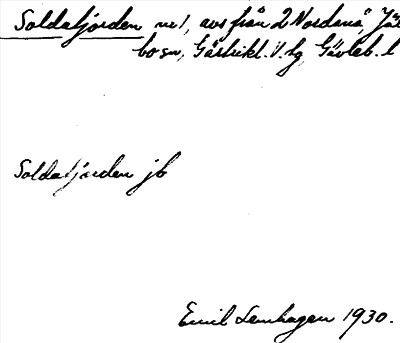 Soldatjorden nr 1, avs från 2 Nordanå, Jät
bo sn, Gästrikl. V. hg, Gävleb. l
Soldatjorden jb
Emil Lenhagen 1930.